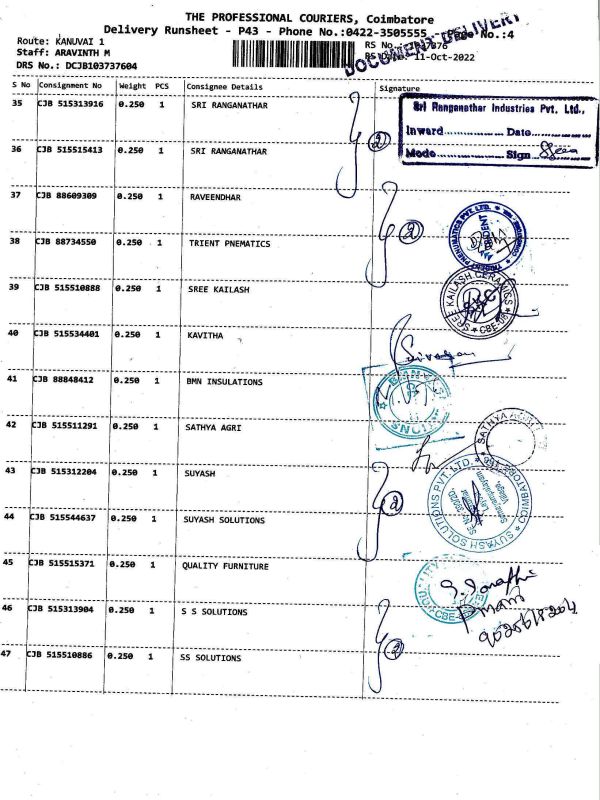 THE PROFESSIONAL COURIERS, Coimbatore
Delivery Runsheet - P43 - Phone No.:0422-3505555 No.:4
Route: KANUVAI 1
Staff: ARAVINTH M
DRS No.: DCJB103737604
RS No.
11-Oct-2022
DOCUMENT DELIVERY
S No Consignment No Weight PCS Consignee Details Signature
35 CJB 515313916 0.250 1 SRI RANGANATHAR
Sri Ranganathar Industries Pvt. Ltd.,
Inward Date
Mode Sign
2
36 CJB 515515413 0.250 1 SRI RANGANATHAR
37 CJB 88609309 0.250 1 RAVEENDHAR
2
38 CJB 88734550 0.250 1 TRIENT PNEMATICS
TRIDENT PNEUMATICS PVT. LTD.
TRIDENT
39 CJB 515510888 0.250 1 SREE KAILASH
SREE KAILASH CERAMICS
CBE
40 CJB 515534401 0.250 1 KAVITHA
41 CJB 88848412 0.250 1 BMN INSULATIONS
42 CJB 515511291 0.250 1 SATHYA AGRI
SATHYA AGRI
43 CJB 515312204 0.250 1 SUYASH
2
44 CJB 515544637 0.250 1 SUYASH SOLUTIONS
SUYASH SOLUTIONS PVT. LTD.
COIMBATORE
45 CJB 515515371 0.250 1 QUALITY FURNITURE
QUALITY
CBE
46 CJB 515313904 0.250 1 S S SOLUTIONS
2
47 CJB 515510886 0.250 1 SS SOLUTIONS